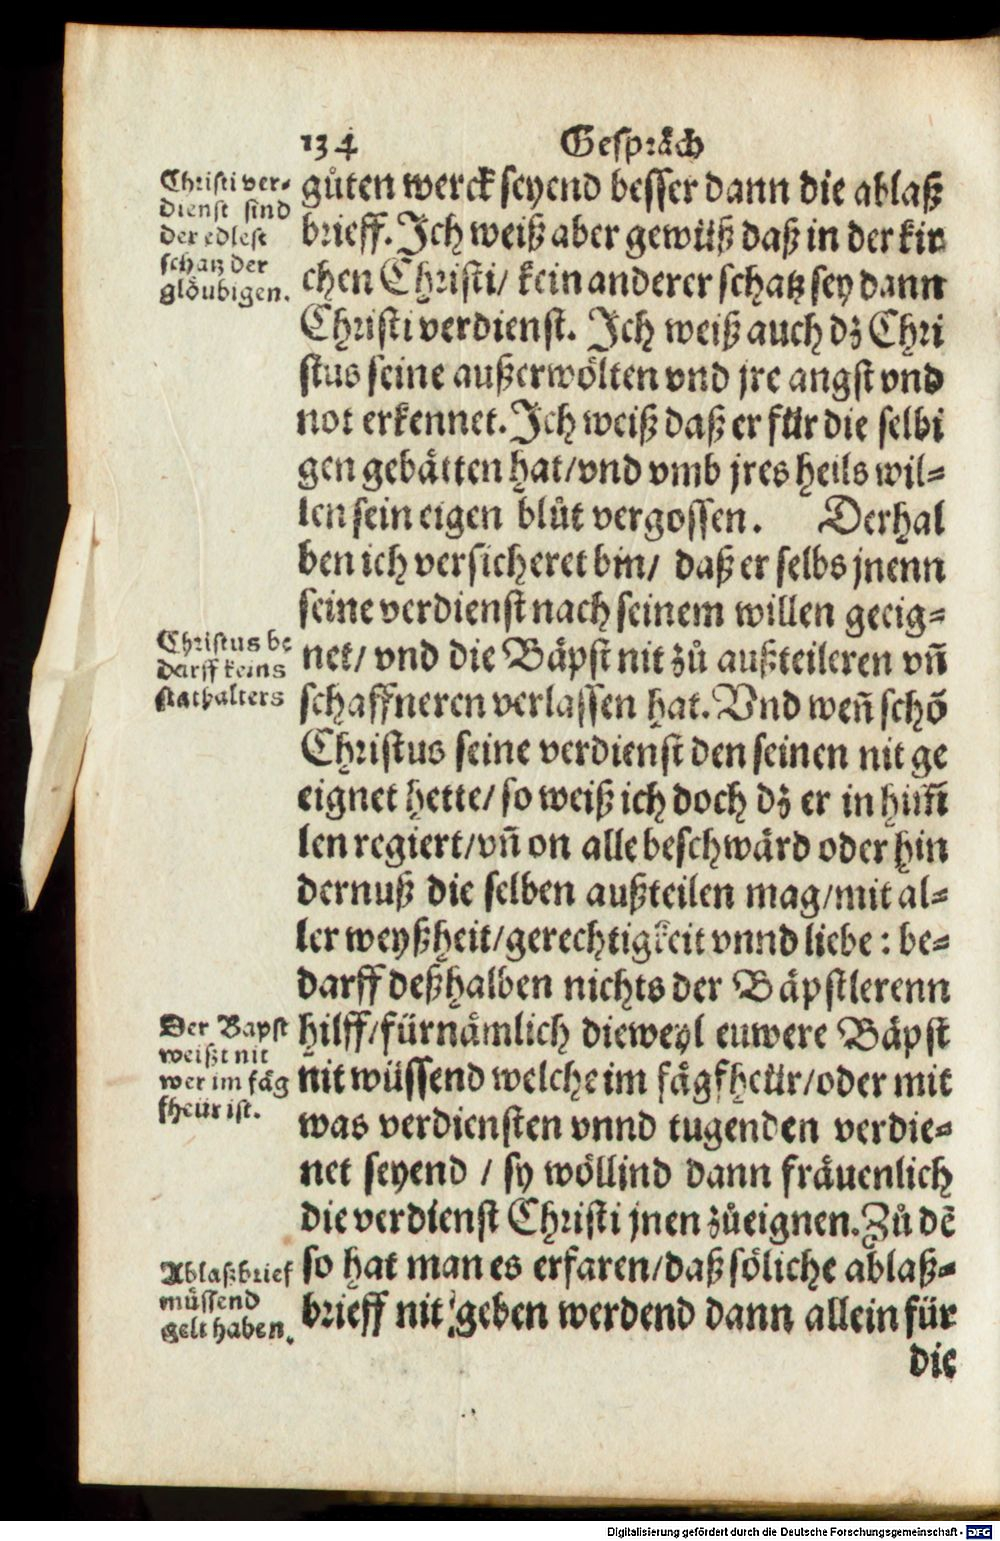 134 Gespräch
Christi ver-
dienst sind
der edlest
schatz der
glöubigen.
gůten werck seyend besser dann die ablaß
brieff. Jch weiß aber gewüß daß in der kir
chen Christi/ kein anderer schatz sey dann
Christi verdienst. Jch weiß auch dz Chri
stus seine außerwölten vnd jre angst vnd
not erkennet. Jch weiß daß er für die selbi
gen gebätten hat/vnd vmb jres heils wil-
len sein eigen blůt vergossen. Derhal
ben ich versicheret bin/ daß er selbs jnenn
seine verdienst nach seinem willen geeig-
Christus be
darff keins
stathalters
net/ vnd die Bäpst nit zů außteileren vñ
schaffneren verlassen hat. Vnd weñ schõ
Christus seine verdienst den seinen nit ge
eignet hette/ so weiß ich doch dz er in him̃
len regiert/vñ on alle beschwärd oder hin
dernuß die selben außteilen mag/mit al-
ler weyßheit/gerechtigkeit vnnd liebe : be-
darff deßhalben nichts der Bäpstlerenn
Der Bapst
weißt nit
wer im fäg
fheür ist.
hilff/fürnämlich dieweyl euwere Bäpst
nit wüssend welche im fägfheür/oder mit
was verdiensten vnnd tugenden verdie-
net seyend / sy wöllind dann fräuenlich
die verdienst Christi jnen zůeignen. Zů dẽ
Ablaßbrief
müssend
gelt haben.
so hat man es erfaren/daß söliche ablaß-
brieff nit geben werdend dann allein für
die
Digitalisierung gefördert durch die Deutsche Forschungsgemeinschaft - DFG